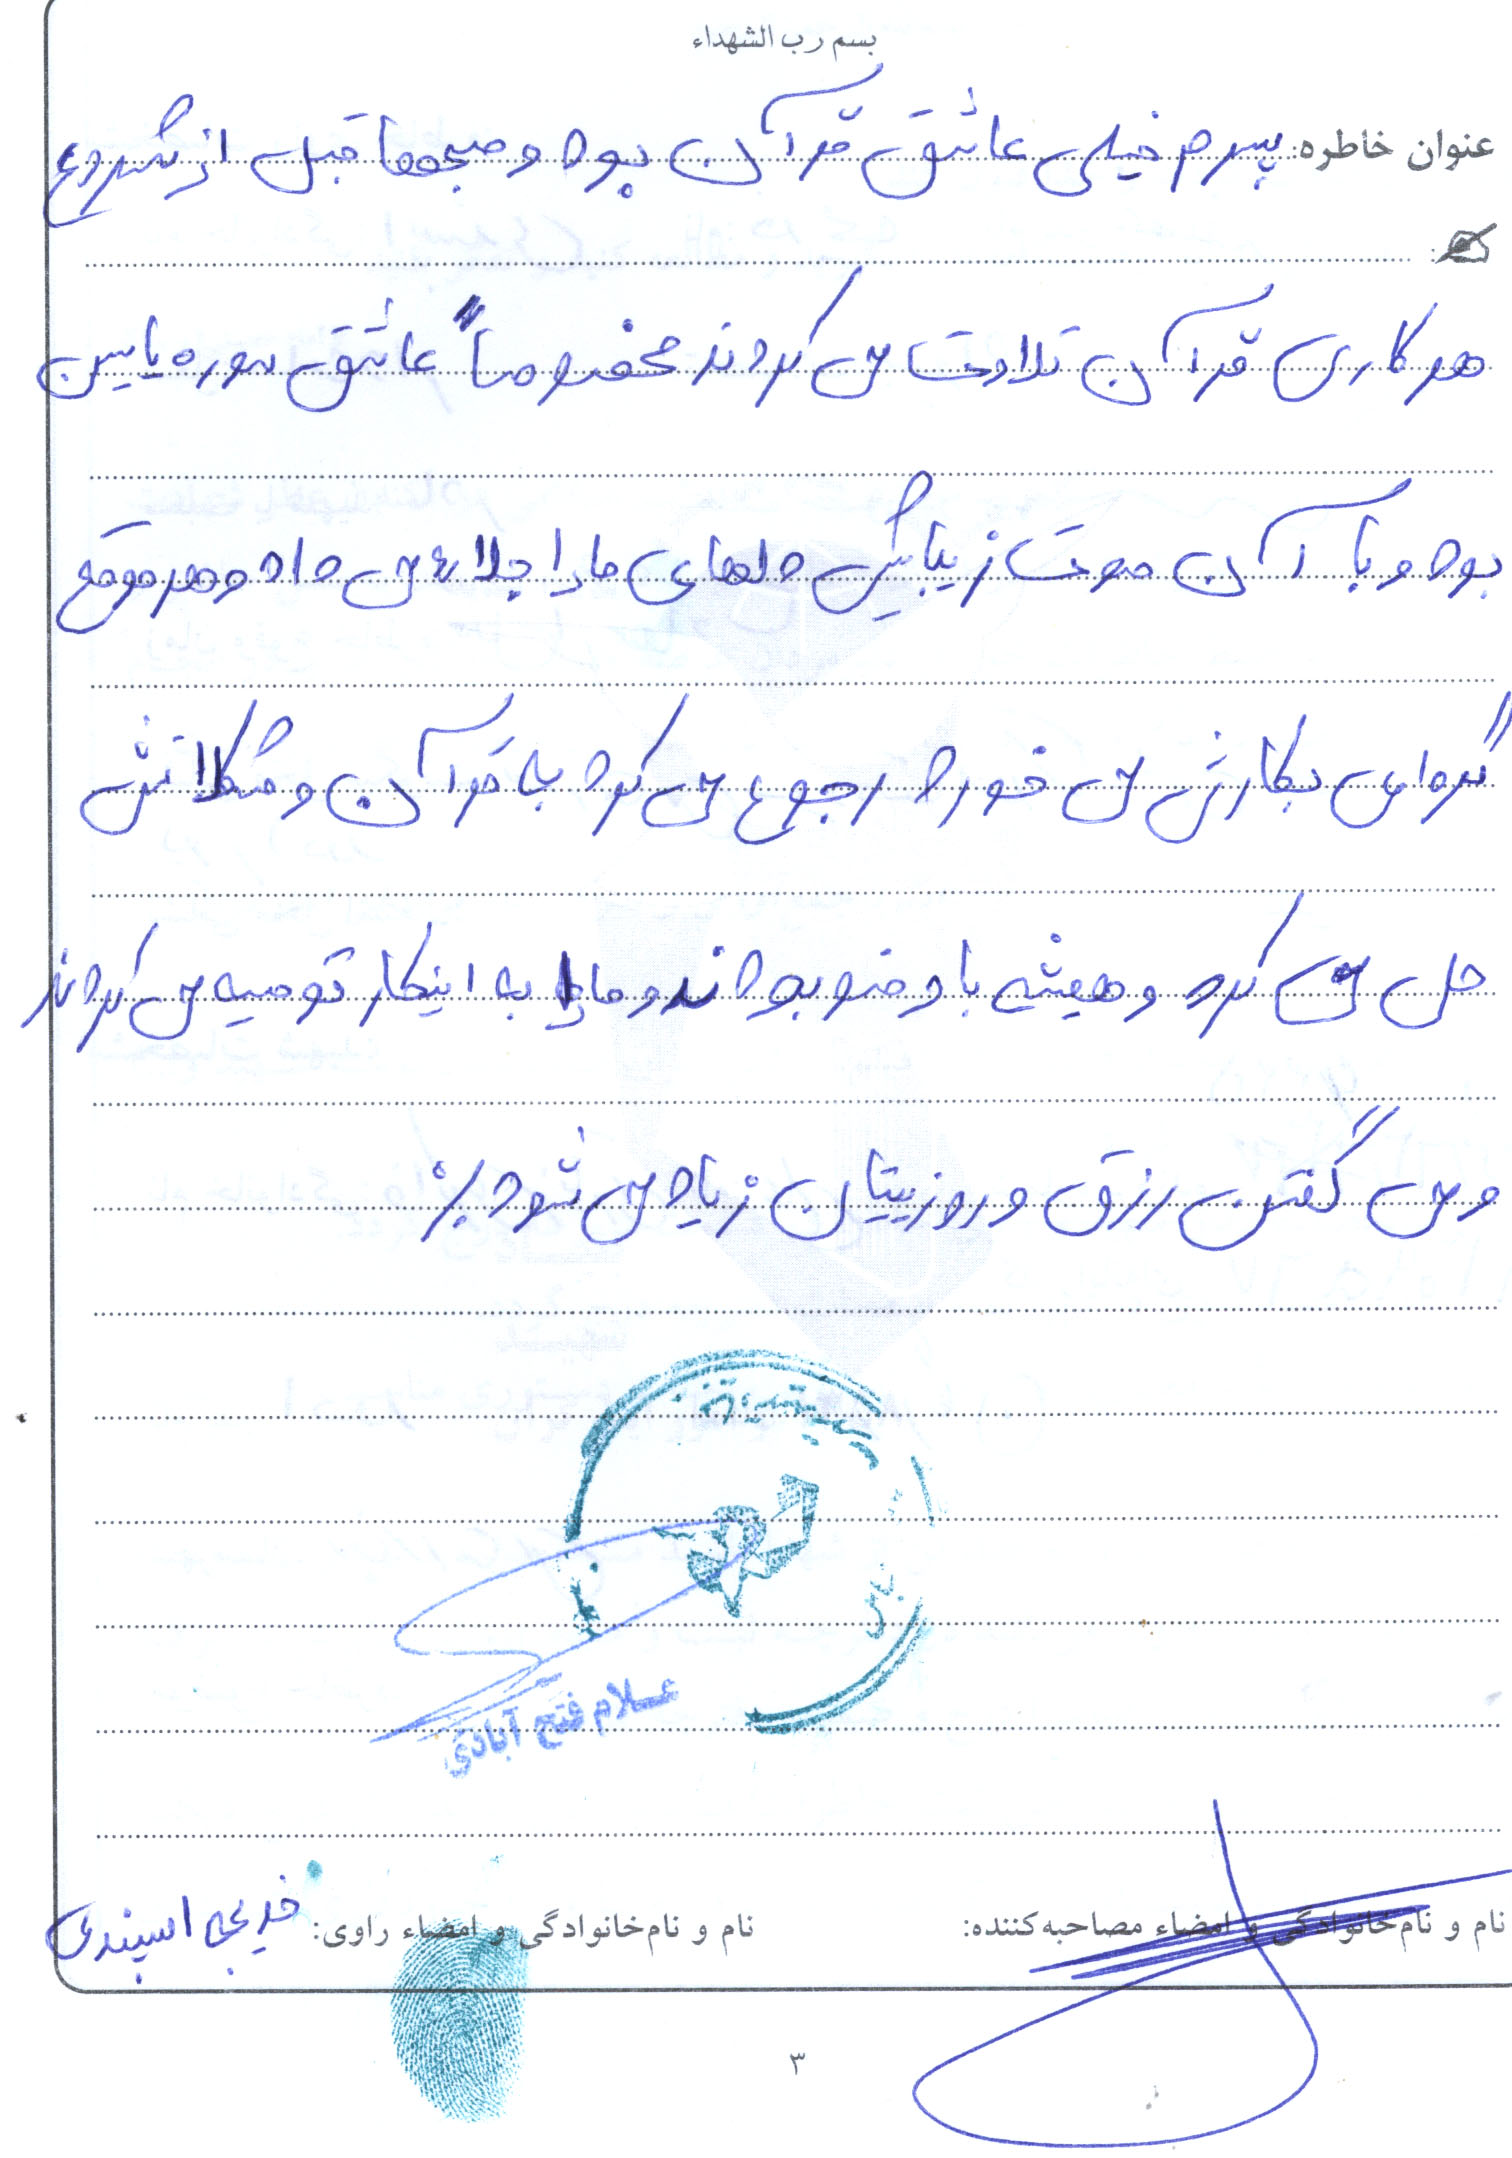 بسم رب الشهداء
عنوان خاطره: پسرم خیلی عاشق قرآن بود و صبحها قبل از شروع
هر کاری قرآن تلاوت می کردند مخصوصاً عاشق سوره یاسین
بود و با آن صوت زیبایش دلهای ما را جلا می داد و هر موقع
گره ای بکارش می خورد رجوع می کرد به قرآن و مشکلاتش
حل می کرد و همیشه با وضو بودند و ما را به اینکار توصیه می کردند
و می گفتن رزق و روزیتان زیاد می شود
غلام فتح آبادی
نام و نام‌خانوادگی و امضاء مصاحبه‌کننده:
نام و نام‌خانوادگی و امضاء راوی: خدیجه اسپندی
۳